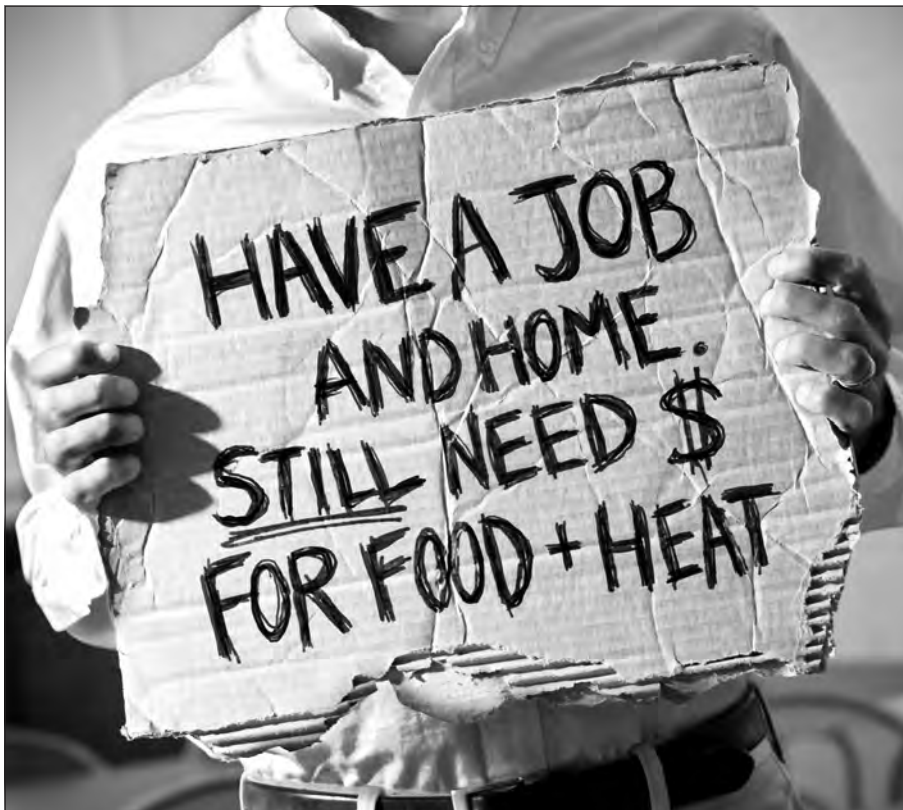 HAVE A JOB
AND HOME.
STILL NEED $
FOR FOOD + HEAT